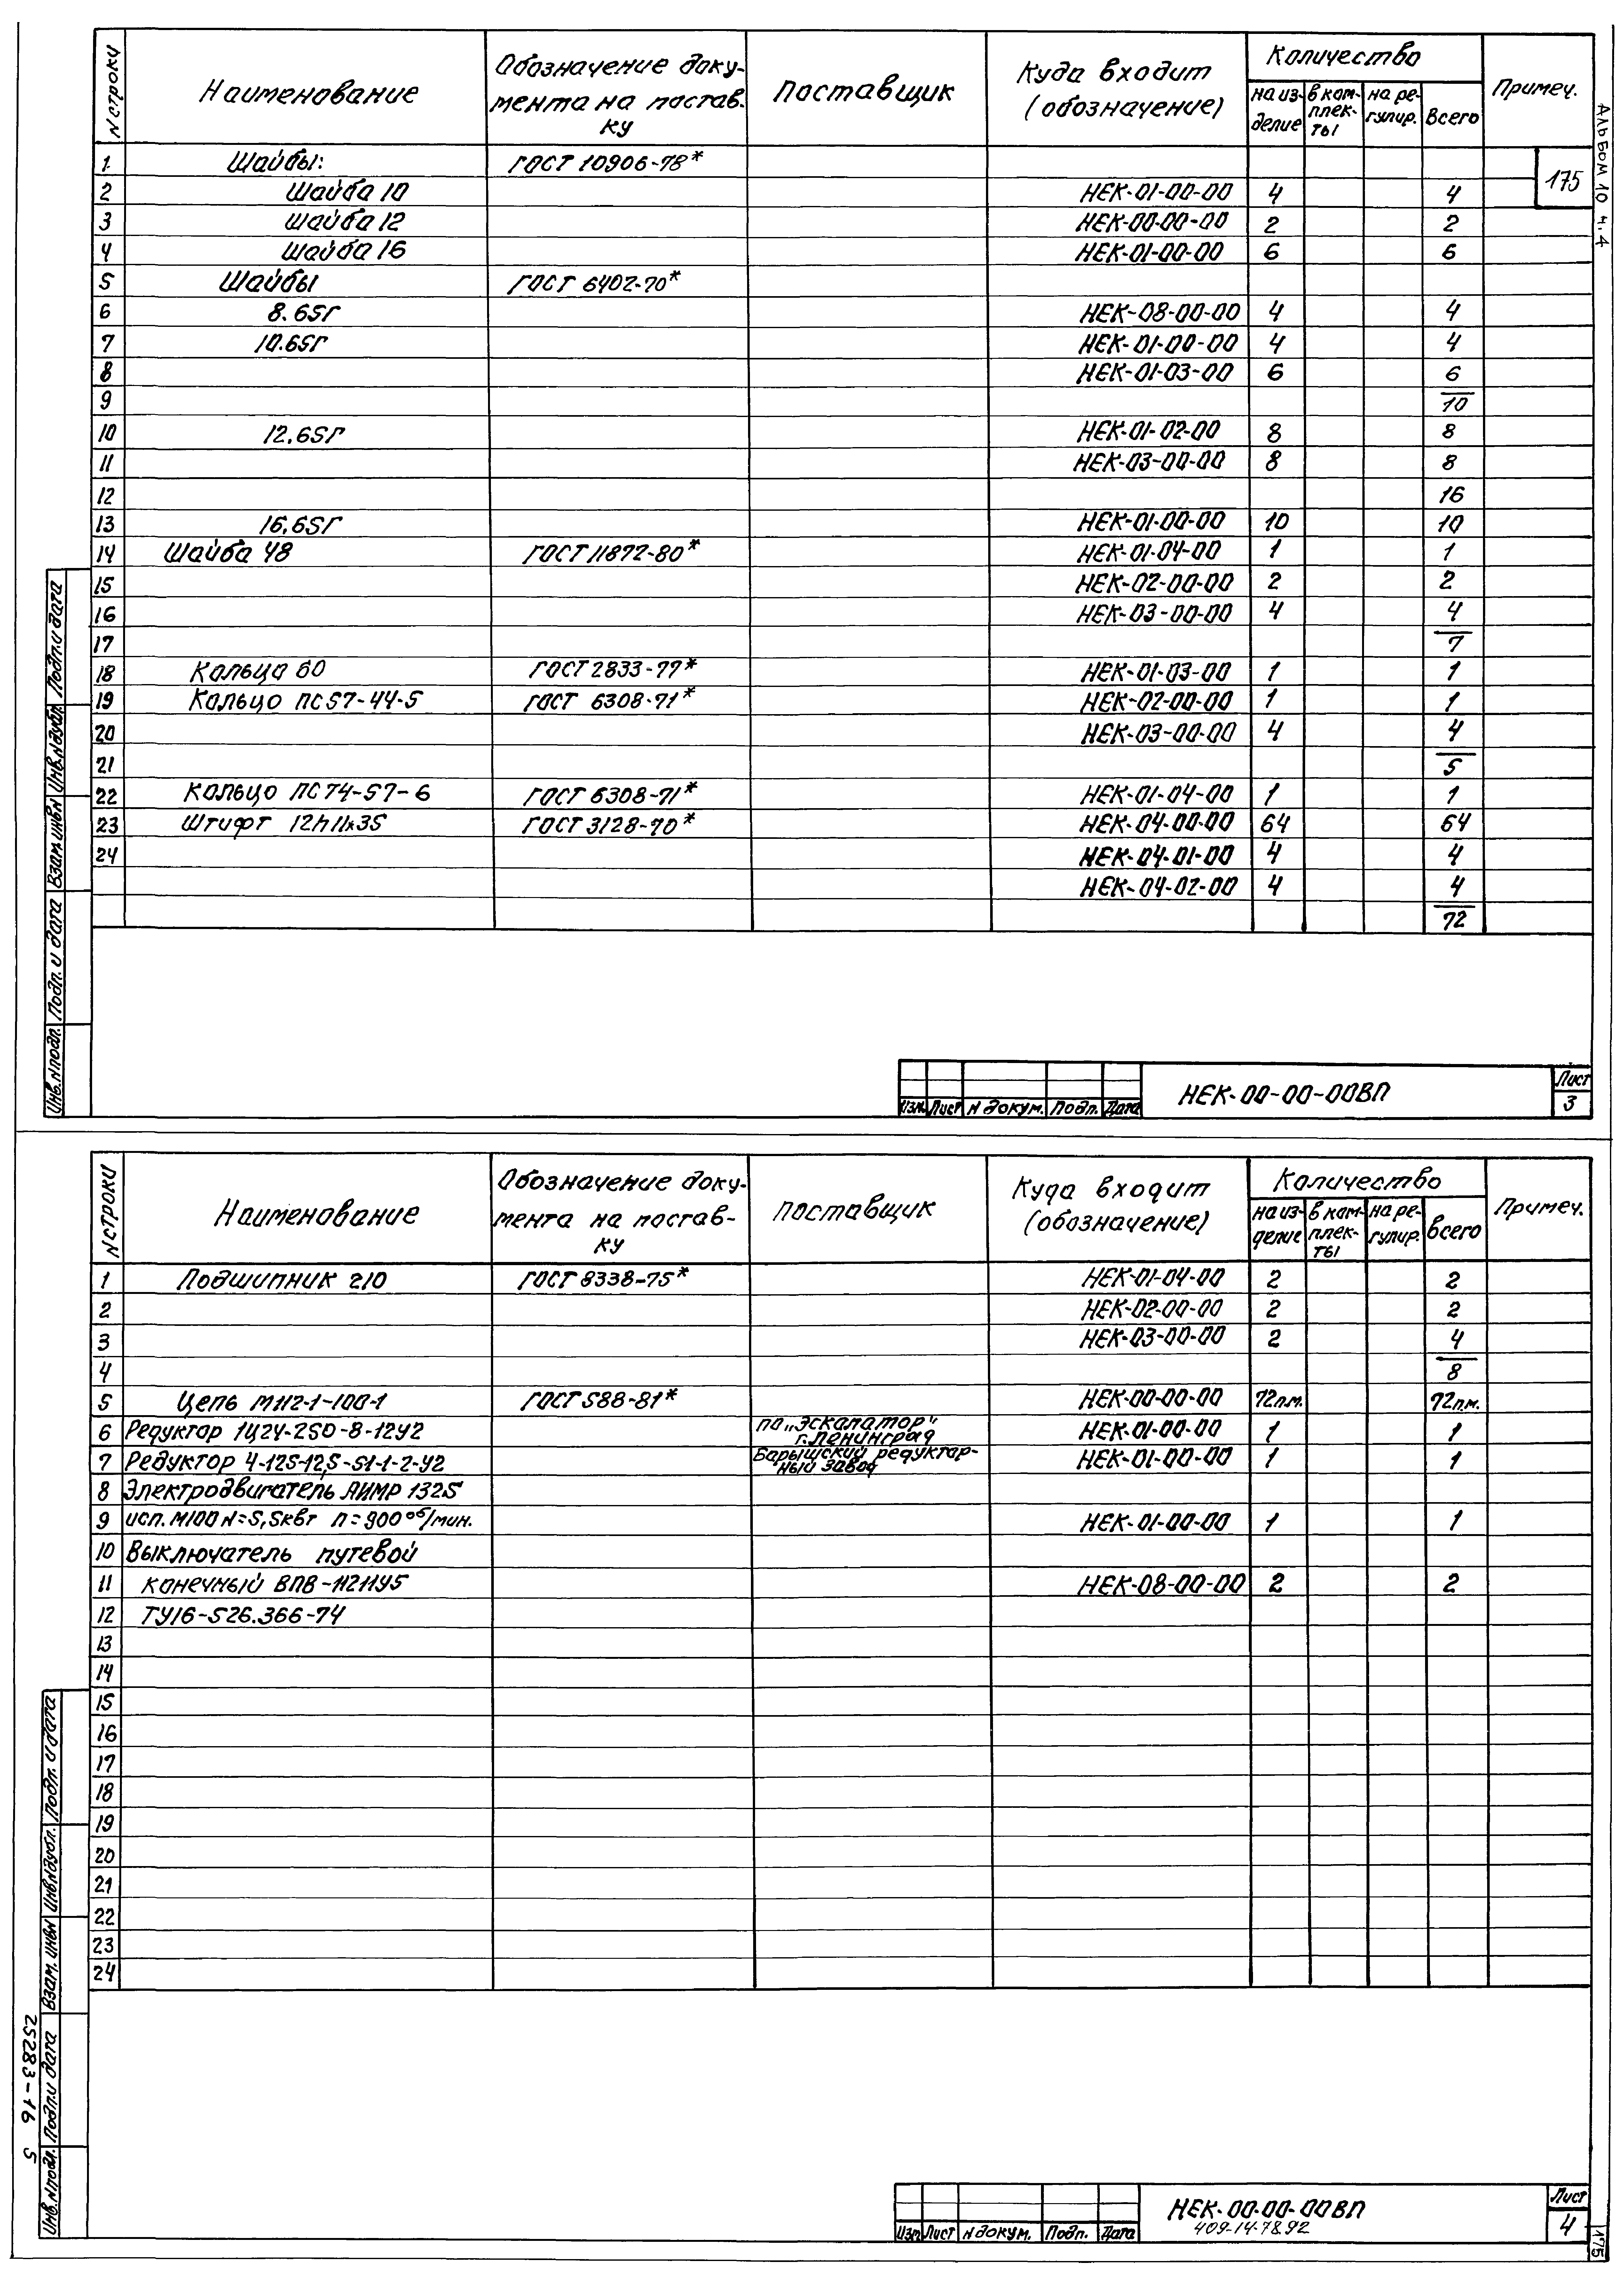 Альбом 10 ч.4
175
N строки Наименование Обозначение доку-мента на постав.ку Поставщик Куда входит (обозначение) Количество Примеч.
на из-делие в ком-плек-ты на ре-гулир. Всего
1 Шайбы: ГОСТ 10906-78*
2 Шайба 10 НЕК-01-00-00 4 4
3 Шайба 12 НЕК-00-00-00 2 2
4 Шайба 16 НЕК-01-00-00 6 6
5 Шайбы ГОСТ 6402-70*
6 8.65Г НЕК-08-00-00 4 4
7 10.65Г НЕК-01-00-00 4 4
8 НЕК-01-03-00 6 6
9 10
10 12.65Г НЕК-01-02-00 8 8
11 НЕК-03-00-00 8 8
12 16
13 16.65Г НЕК-01-00-00 10 10
14 Шайба 48 ГОСТ 11872-80* НЕК-01-04-00 1 1
15 НЕК-02-00-00 2 2
16 НЕК-03-00-00 4 4
17 7
18 Кольцо 60 ГОСТ 2833-77* НЕК-01-03-00 1 1
19 Кольцо ПС57-44-5 ГОСТ 6308-71* НЕК-02-00-00 1 1
20 НЕК-03-00-00 4 4
21 5
22 Кольцо ПС74-57-6 ГОСТ 6308-71* НЕК-01-04-00 1 1
23 Штифт 12h11x35 ГОСТ 3128-70* НЕК-04-00-00 64 64
24 НЕК-04-01-00 4 4
НЕК-04-02-00 4 4
72
Инв.N подл. Подп. и дата Взам.инв N Инв.N дубл. Подп. и дата
Изм. Лист N докум. Подп. Дата
НЕК-00-00-00ВП
Лист
3
N строки Наименование Обозначение доку-мента на постав-ку Поставщик Куда входит (обозначение) Количество Примеч.
на из-делие в ком-плек-ты на ре-гулир. Всего
1 Подшипник 210 ГОСТ 8338-75* НЕК-01-04-00 2 2
2 НЕК-02-00-00 2 2
3 НЕК-03-00-00 2 4
4 8
5 Цепь М112-1-100-1 ГОСТ 588-81* НЕК-00-00-00 72п.м. 72п.м.
6 Редуктор 1Ц2У-250-8-12У2 по „Эскалатор" г.Ленинград НЕК-01-00-00 1 1
7 Редуктор Ч-125-12,5-51-1-2-У2 Барышский редуктор-ный завод НЕК-01-00-00 1 1
8 Электродвигатель АИМР 132S
9 исп. М100 N=5,5квт n=900 об/мин. НЕК-01-00-00 1 1
10 Выключатель путевой
11 конечный ВПВ-1121У5 НЕК-08-00-00 2 2
12 ТУ16-526.366-74
13
14
15
16
17
18
19
20
21
22
23
24
Инв.N подл. Подп. и дата Взам. инв N Инв.N дубл. Подп. и дата
25283-16 5
Изм Лист N докум. Подп. Дата
НЕК-00-00-00ВП
409-14-78.92
Лист
4
175